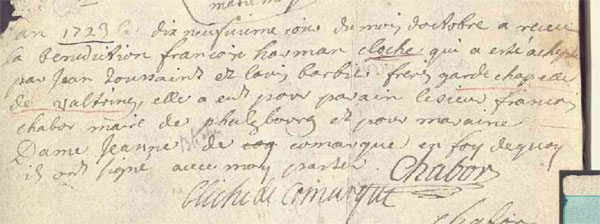 an 1723 le dix neufuieme jour du mois doctobre a receu
la benediction francoise harman cloche qui a esté acheptée
par Jean toussaint et louis barbier freres garde chapelle
de valtring, elle a eut pour parain le sieur francois
chabor maire de phalsbourg et pour maraine
Dame Jeanne de comarque en foy de quoy
ils ont signé avec moy
Chabor